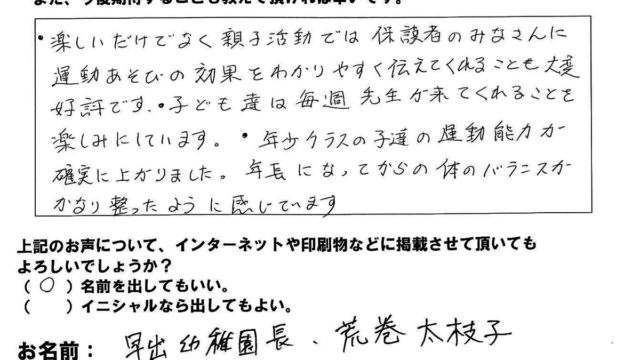 また、今後期待することも教えて頂ければ幸いです。
・楽しいだけでなく親子活動では保護者のみなさんに
運動あそびの効果をわかりやすく伝えてくれることも大変
好評です。・子ども達は毎週先生が来てくれることを
楽しみにしています。・年少クラスの子達の運動能力が
確実に上がりました。年長になってからの体のバランスが
かなり整ったように感じています
上記のお声について、インターネットや印刷物などに掲載させて頂いても
よろしいでしょうか?
(○)名前を出してもいい。
( )イニシャルなら出してもよい。
お名前: 早出幼稚園長、荒巻太枝子